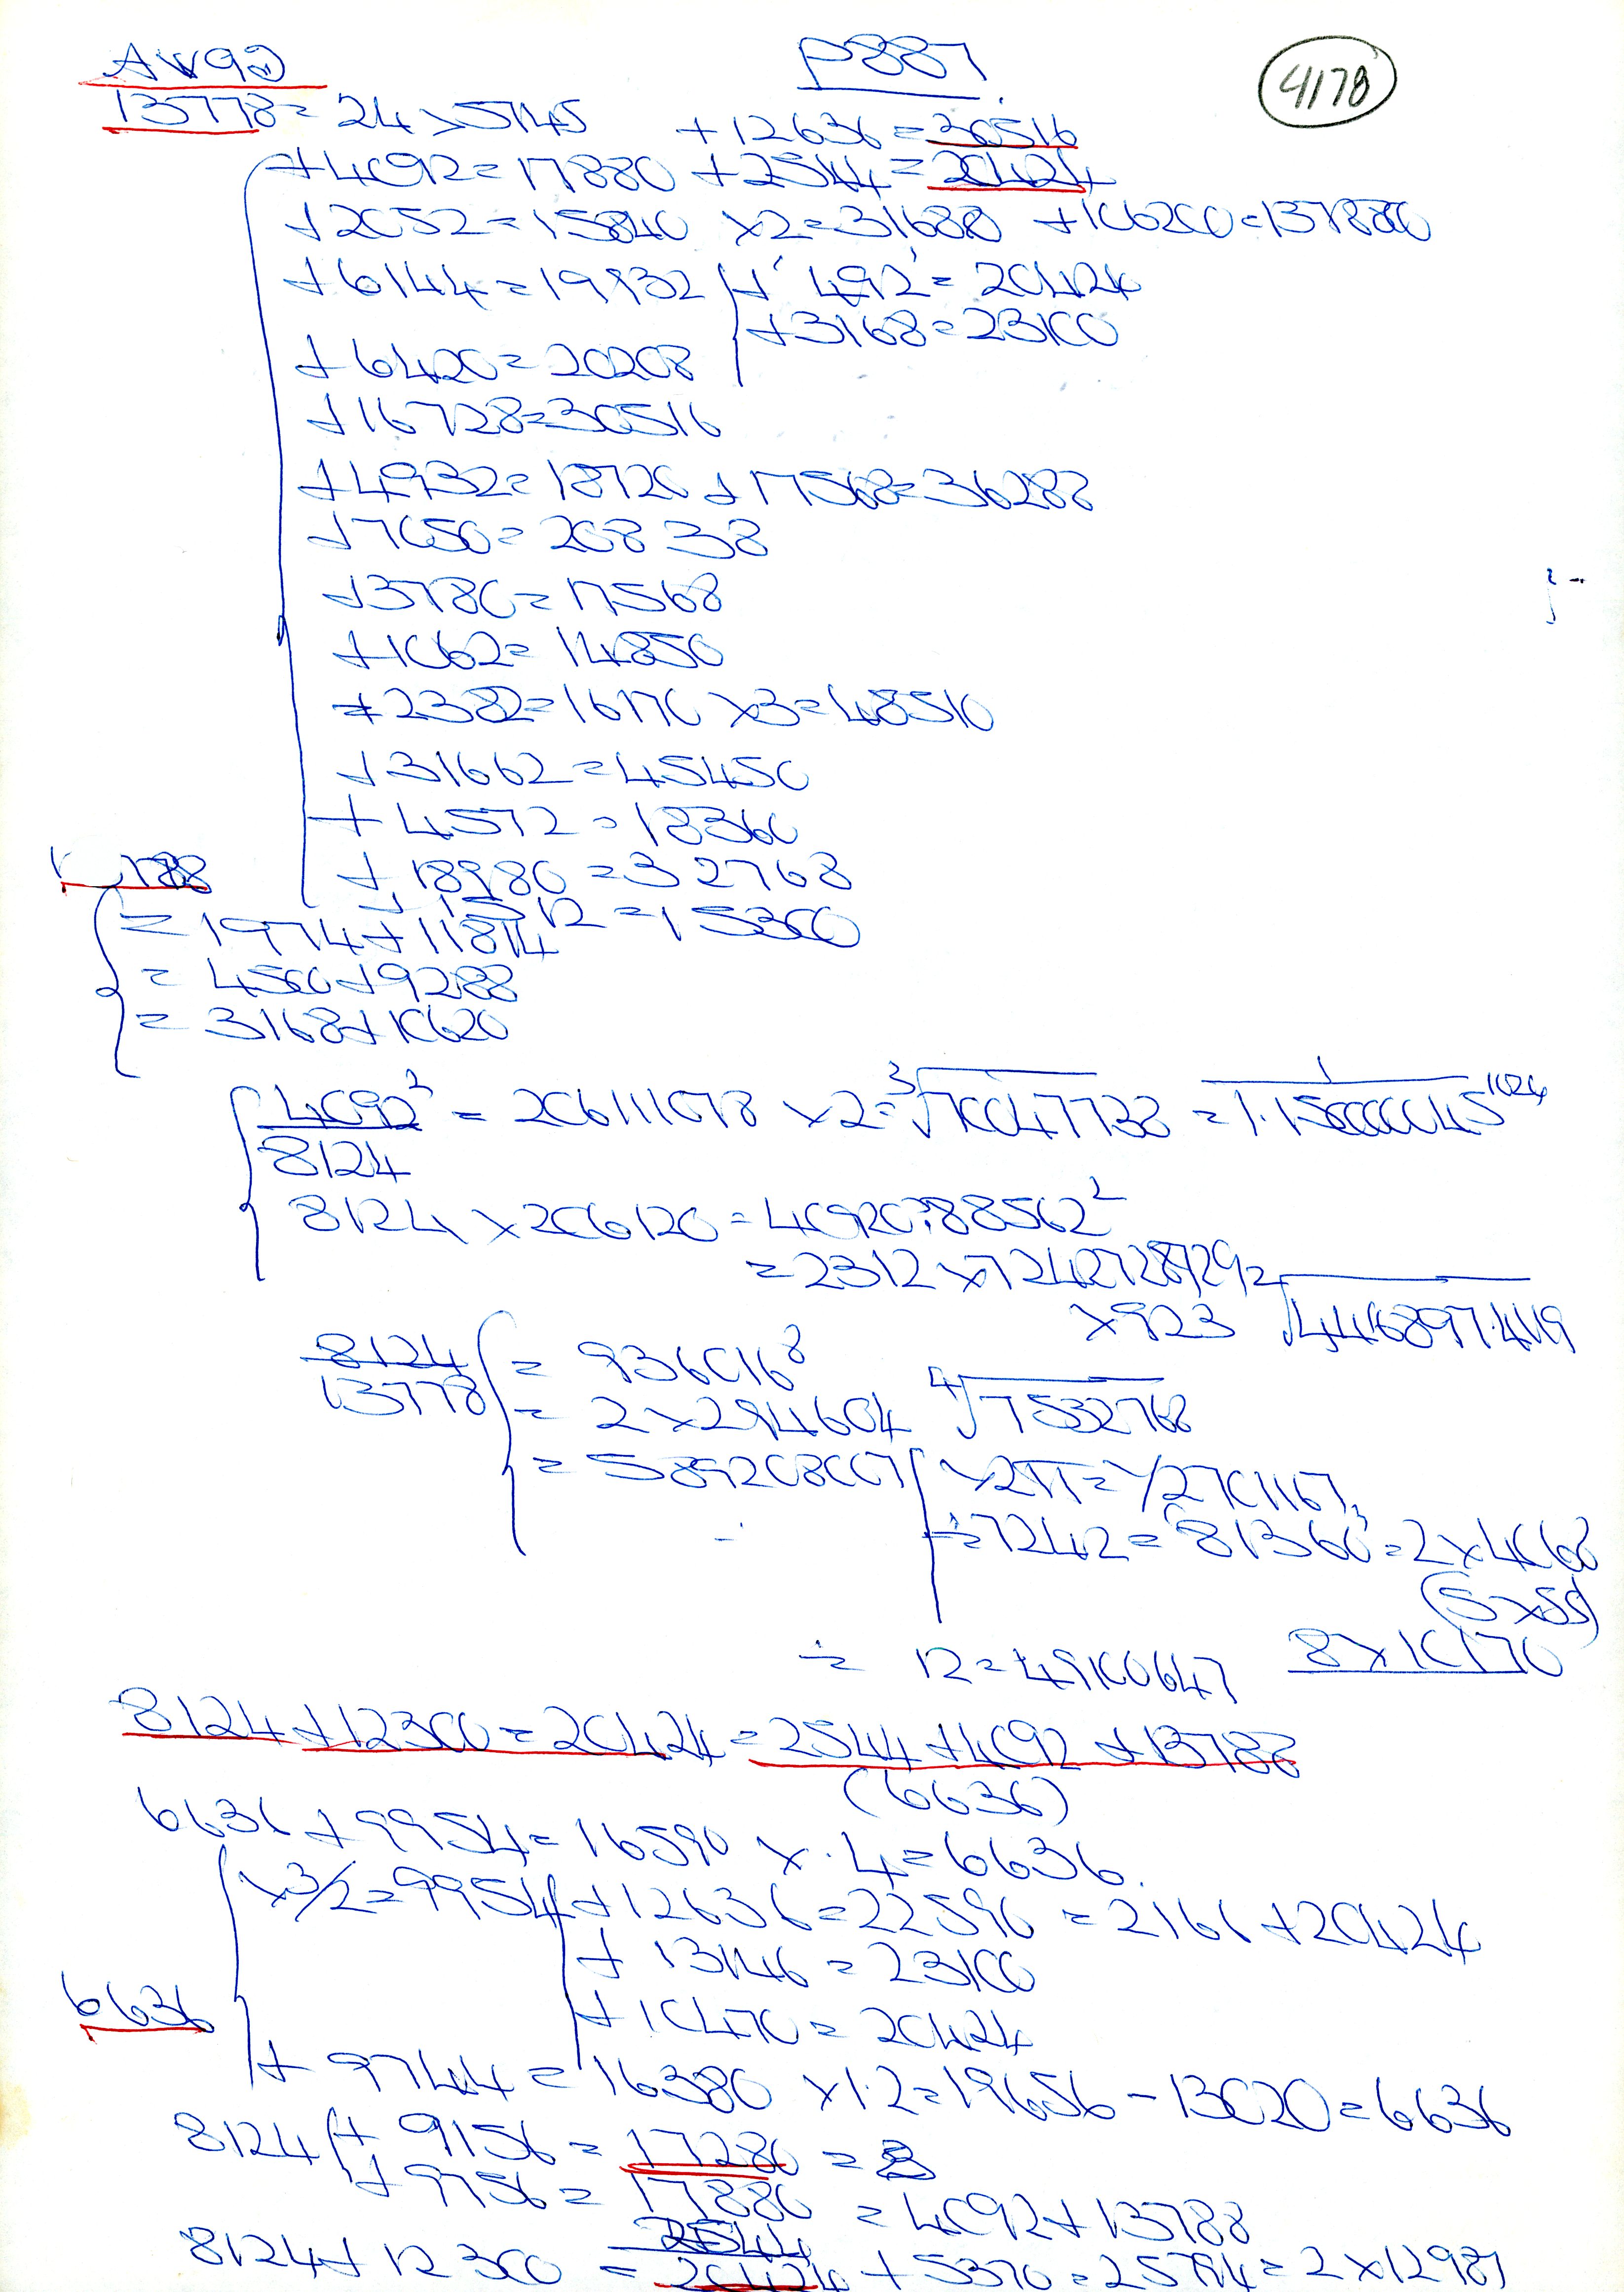 AW92
P887
4178
13778 = 24 × 5745 + 12636 = 30516
+ 4092 = 17880 + 2544 = 20424
+ 2052 = 15840 × 2 = 31688 + 106200 = 137880
+ 6144 = 19932 + 492 = 20424
+ 3168 = 23100
+ 6420 = 20208
+ 16728 = 30516
+ 4932 = 18720 + 17568 = 36288
+ 7050 = 20838
+ 3780 = 17568
+ 1062 = 14850
+ 2382 = 16170 × 3 = 48510
+ 31662 = 45450
+ 4572 = 18360
+ 18980 = 32768
+ 1512 = 15300
= 1974 + 11814
= 4500 + 9288
= 3168 + 10620
4092² = 206111078 × 2 = ³√70047738 = 1.1560000045
8124
8124 × 206120 = 40920788562²
= 2312 × 7242728929 =
× 923 √4416897.4119
8124 = 936016⁸
13778 = 2 × 294604 ⁴√7532768
= 589208007 × 2π = 1/2701167
÷ 7242 = 81360 = 2 × 4068
(5 × 55)
÷ 12 = 49100647 8 × 10170
8124 + 12300 = 20424 = 2544 + 4092 + 13788
(6636)
6636 + 9954 = 16590 × .4 = 6636
× 3/2 = 9954 + 12636 = 22590 = 2166 + 20424
+ 13146 = 23100
6636
+ 10470 = 20424
+ 9744 = 16380 × 1.2 = 19656 - 13020 = 6636
8124 + 9156 = 17280 =
+ 9756 = 17880 = 4092 + 13788
2544
8124 + 12300 = 20424 + 5370 = 25794 = 2 × 12987